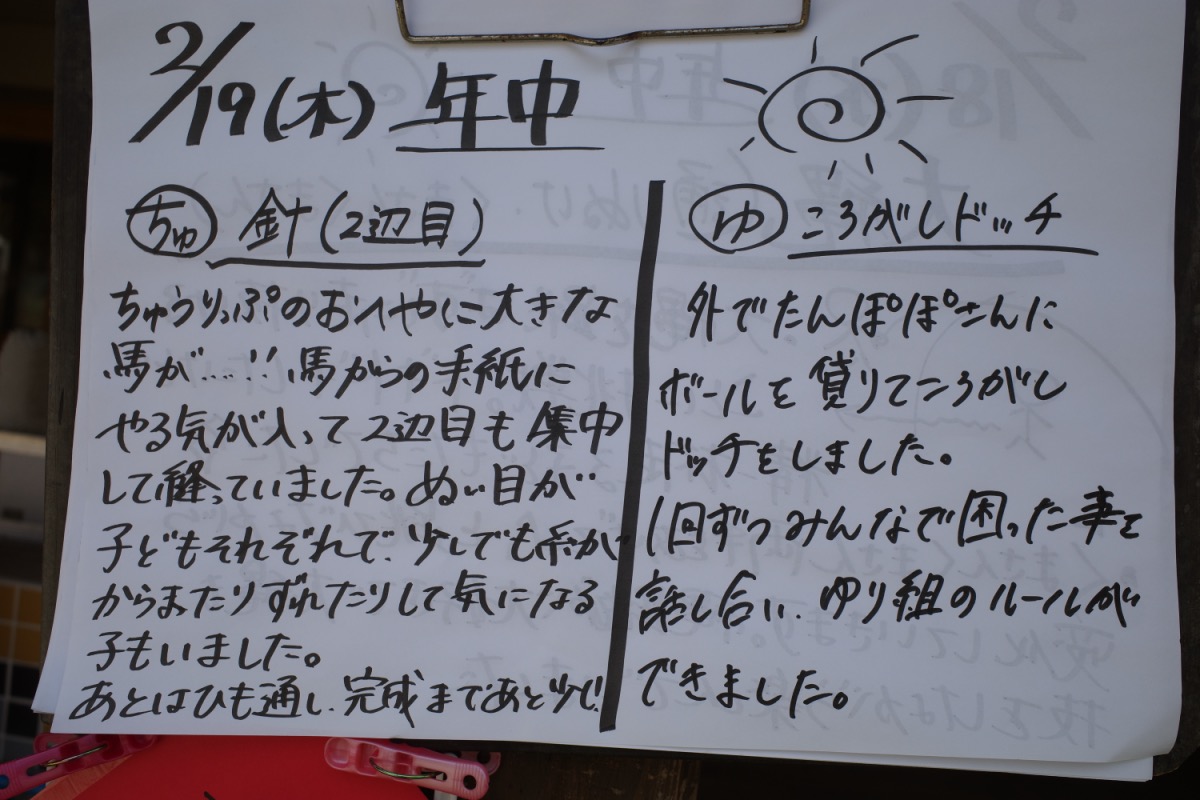 2/19(木) 年中
ちゅ 針(2辺目)
ちゅうりっぷのおへやに大きな
馬が.....!! 馬からの手紙に
やる気が入って2辺目も集中
して縫っていました。ぬい目が
子どもそれぞれで、少しでも糸が
からまたりずれたりして気になる
子もいました。
あとはひも通し、完成まであと少し!
ゆ ころがしドッチ
外でたんぽぽさんに
ボールを貸りてころがし
ドッチをしました。
1回ずつみんなで困った事を
話し合い、ゆり組のルールが
できました。